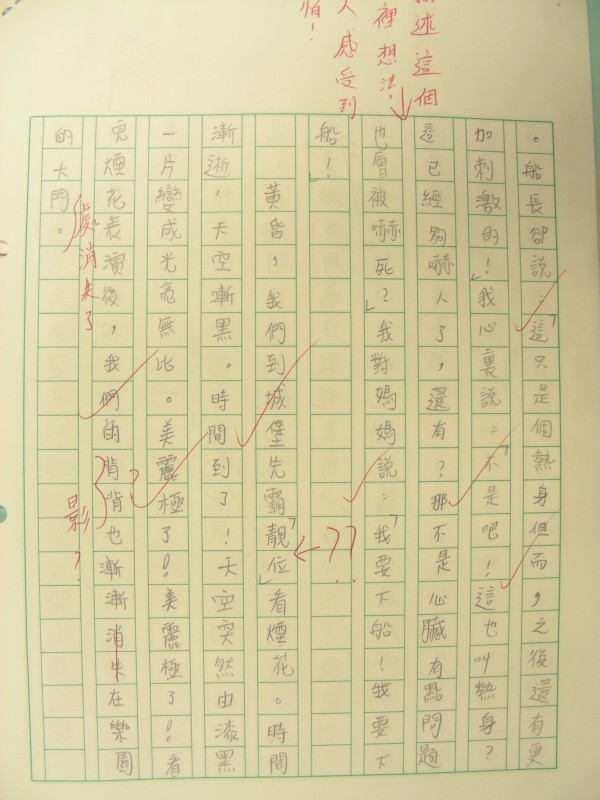 述這個
裡想法，
人感受到
怕！
。船長卻說：「這只是個熱身但而，之後還有更
加刺激的！」我心裏說：「不是吧！這也叫熱身？
這已經夠嚇人了，還有？那不是心臟有點問題
也會被嚇死？」我對媽媽說：「我要下船！我要下
船！」
黃昏，我們到城堡先霸「靚位」看煙花。時間
??
漸逝，天空漸黑。時間到了！天空突然由漆黑
一片變成光亮無比。美麗極了！美麗極了！看
?
完煙花表演後，我們的背背也漸漸消失在樂園
影?
的大門。
處消失了